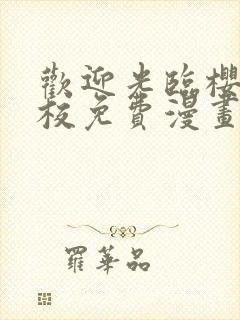 歡迎光臨櫻
板免費漫畫
羅華品